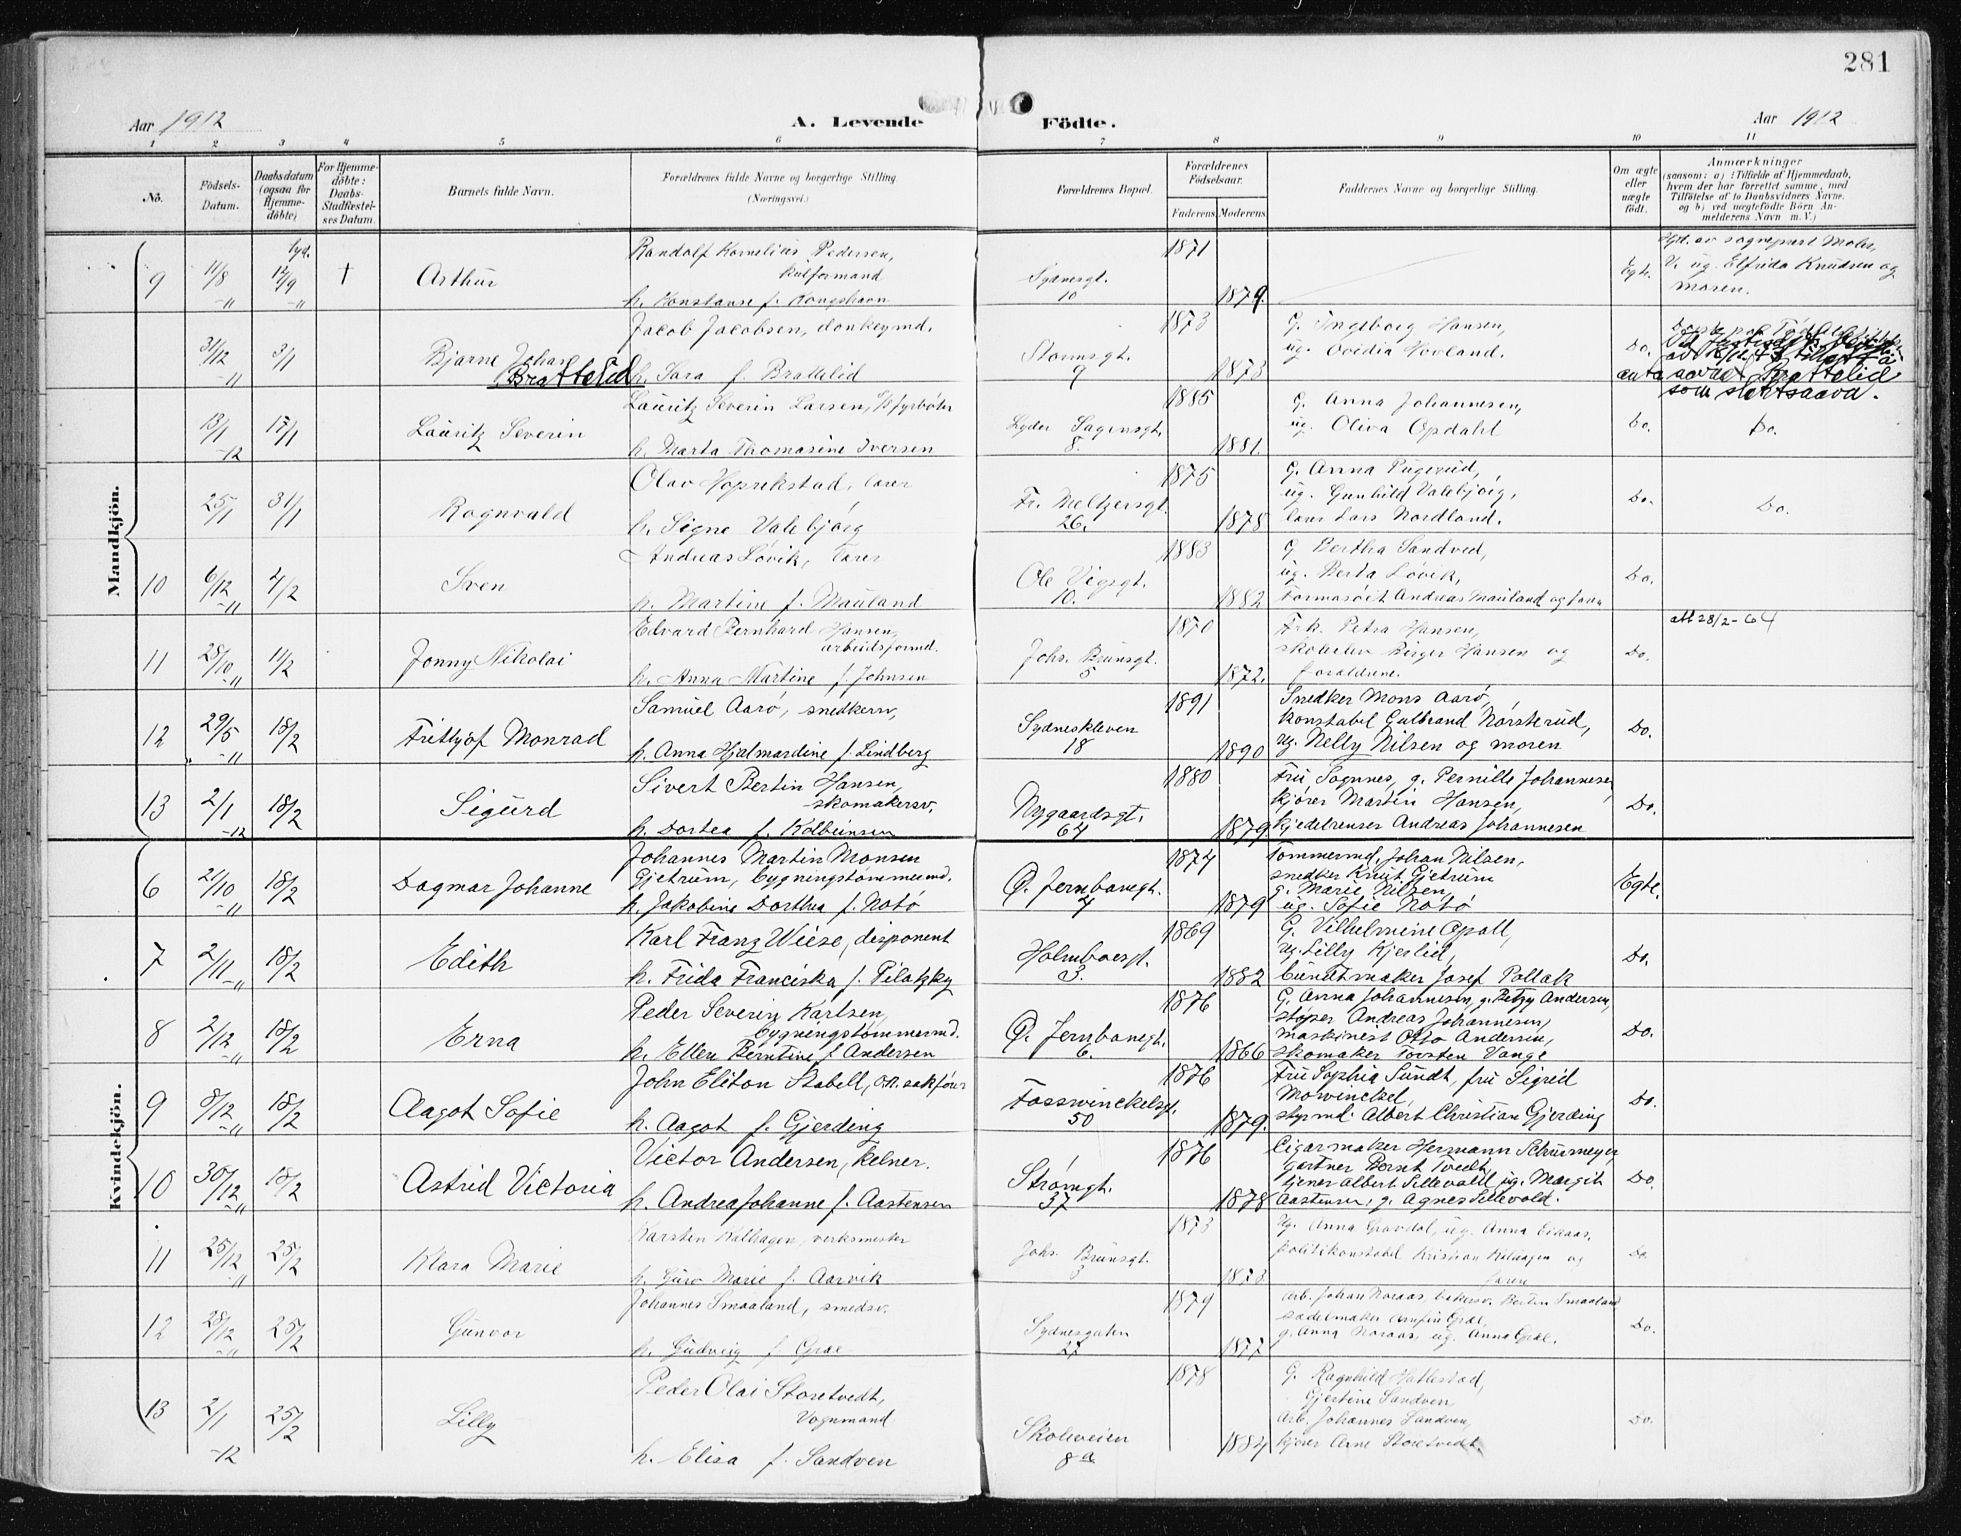 281
Aar 1912 A. Levende Födte. Aar 1912
1 2 3 4 5 6 7 8 9 10 11
No. Födsels-Datum. Daabsdatum (ogsaa for Hjemmedöbte) For Hjemmedöbte: Daabs-Stadfæstelses Datum. Barnets fulde Navn. Forældrenes fulde Navne og borgerlige Stilling. (Næringsvei.) Forældrenes Bopæl. Forældrenes Födselsaar. Faderens. Moderens. Faddernes Navne og borgerlige Stilling. Om ægte eller uægte født. Anmærkninger (saasom: a) i Tilfælde af Hjemmedaab, hvem der har forrettet samme, med Tilføielse af to Daabsvidners Navne. og b) ved uægtefödte Börn Anmelderens Navn m. V.)
Mandkjön.
9 11/8 -11 12/9 -11 † Arthur
Randolf Kornelius Pedersen,
kulformand
h. Konstanse f. Kongshavn
Sydnesgt. 10 1871 1879. Egte.
V. ug. Elfrida Knudsen og
moren.
31/12 -11 3/1 Bjarne Johan Brattelid
Jacob Jacobsen, donkeymd.
h. Sara f. Brattelid
Stormsgt. 9 1873 1873
G. Ingeborg Hansen,
ug. Ovidia Hovland. Do.
anta navnet Brattelid
som slektsnavn.
13/1 -12 17/1 Lauritz Severin
Lauritz Severin Larsen, fyrbøter
h. Marta Thomasine Iversen
Lyder Sagensgt. 8. 1885 1881.
G. Anna Johannesen,
ug. Oliva Opdahl Do. Do.
25/1 31/1 Ragnvald
Olav Hoprekstad, lærer
h. Signe Valebjørg
Fr. Meltzersgt. 26. 1875 1878
G. Anna Pugerud,
ug. Gunhild Valebjørg,
lærer Lars Nordland. Do. Do.
10 6/12 -11 4/2 Sven
Andreas Løvik, lærer
h. Martine f. Mauland
Ole Vigsgt. 10. 1883 1882
G. Bertha Sandved,
ug. Berta Løvik,
Farmasøit Andreas Mauland og faren Do.
11 25/10 -11 11/2 Jonny Nikolai
Edvard Bernhard Hansen,
arbeidsformd.
h. Anna Martine f. Johnsen
Johs. Brunsgt. 5 1870 1872.
Frk. Petra Hansen,
skoleelev Birger Hansen og
forældrene. Do. att 28/2-64
12 29/5 -11 18/2 Frithjof Monrad
Samuel Aarø, snedkersv,
h. Anna Hjalmardine f. Lindberg
Sydneskleven 18 1891 1890
Snedker Mons Aarø,
konstabel Gulbrand Nørsterud,
ug. Nelly Nilsen og moren Do.
13 2/1 -12 18/2 Sigurd
Sivert Bertin Hansen,
skomakersv.
h. Dortea f. Kolbeinsen
Nygaardsgt. 64 1880 1879
Fru Sognnes, g. Pernille Johannesen,
kjører Martin Hansen,
kjedelrenser Andreas Johannesen Do.
Kvindekjön.
6 21/10 -11 18/2 Dagmar Johanne
Johannes Martin Monsen
Gjetrum, bygningstømmermd.
h. Jakobine Dorthea f. Notø
Ø. Jernbanegt. 4 1874 1879
Tømmermd. Johan Nilsen,
snedker Knut Gjetrum
g. Marie Nilsen,
ug. Sofie Notø Egte.
7 2/11 -11 18/2 Edith
Karl Franz Wiese, disponent
h. Frida Franciska f. Pilatzky
Holmboesgt. 3. 1869 1882
G. Vilhelmine Opall,
ug. Lilly Kjeslid,
buntmaker Josef Pollak Do.
8 2/12 -11 18/2 Erna
Peder Severin Karlsen,
bygningstømmermd.
h. Ellen Berntine f. Andersen
Ø. Jernbanegt. 6. 1876 1866
G. Anna Johannesen, g. Petzy Andersen,
støper Andreas Johannesen,
maskinist Otto Andersen,
skomaker Torsten Vange Do.
9 8/12 -11 18/2 Aagot Sofie
John Eliton Stabell, o.r. sakfører
h. Aagot f. Gjerding
Fosswinckelsgt. 50 1876 1879.
Fru Sophia Sundt, fru Sigrid
Mowinckel,
styrmd. Albert Christian Gjerding Do.
10 30/12 -11 18/2 Astrid Victoria
Victor Andersen, kelner.
h. Andrea Johanne f. Aastensen
Strømgt. 37 1876 1878
Cigarmaker Hermann Schürmeyer,
gartner Bernt Tvedt,
tjener Albert Sellevold, ug. Margit
Aastensen, g. Agnes Sellevold. Do.
11 25/12 -11 25/2 Klara Marie
Karsten Kalhagen, verksmester
h. Guro Marie f. Aarvik
Johs. Brunsgt. 3 1873 1873.
Ug. Anna Gravdal, ug. Anna Eikaas,
politikonstabel Kristian Kalhagen og
faren Do.
12 28/12 -11 25/2 Gunvor
Johannes Smaaland, smedsv.
h. Gudveig f. Græe
Sydnesgaten 27 1879 1877
Arb. Johan Noraas, bakersv. Berten Smaaland
sadelmaker Arnfin Græe,
g. Anna Noraas, ug. Anna Græe. Do.
13 2/1 -12 25/2 Lilly
Peder Olai Storetvedt,
Vognmand
h. Elisa f. Sandven
Skoleveien 8a 1878 1884
G. Ragnhild Hatlestad,
Gjertine Sandven
arb. Johannes Sandven,
kjører Arne Storetvedt. Do.